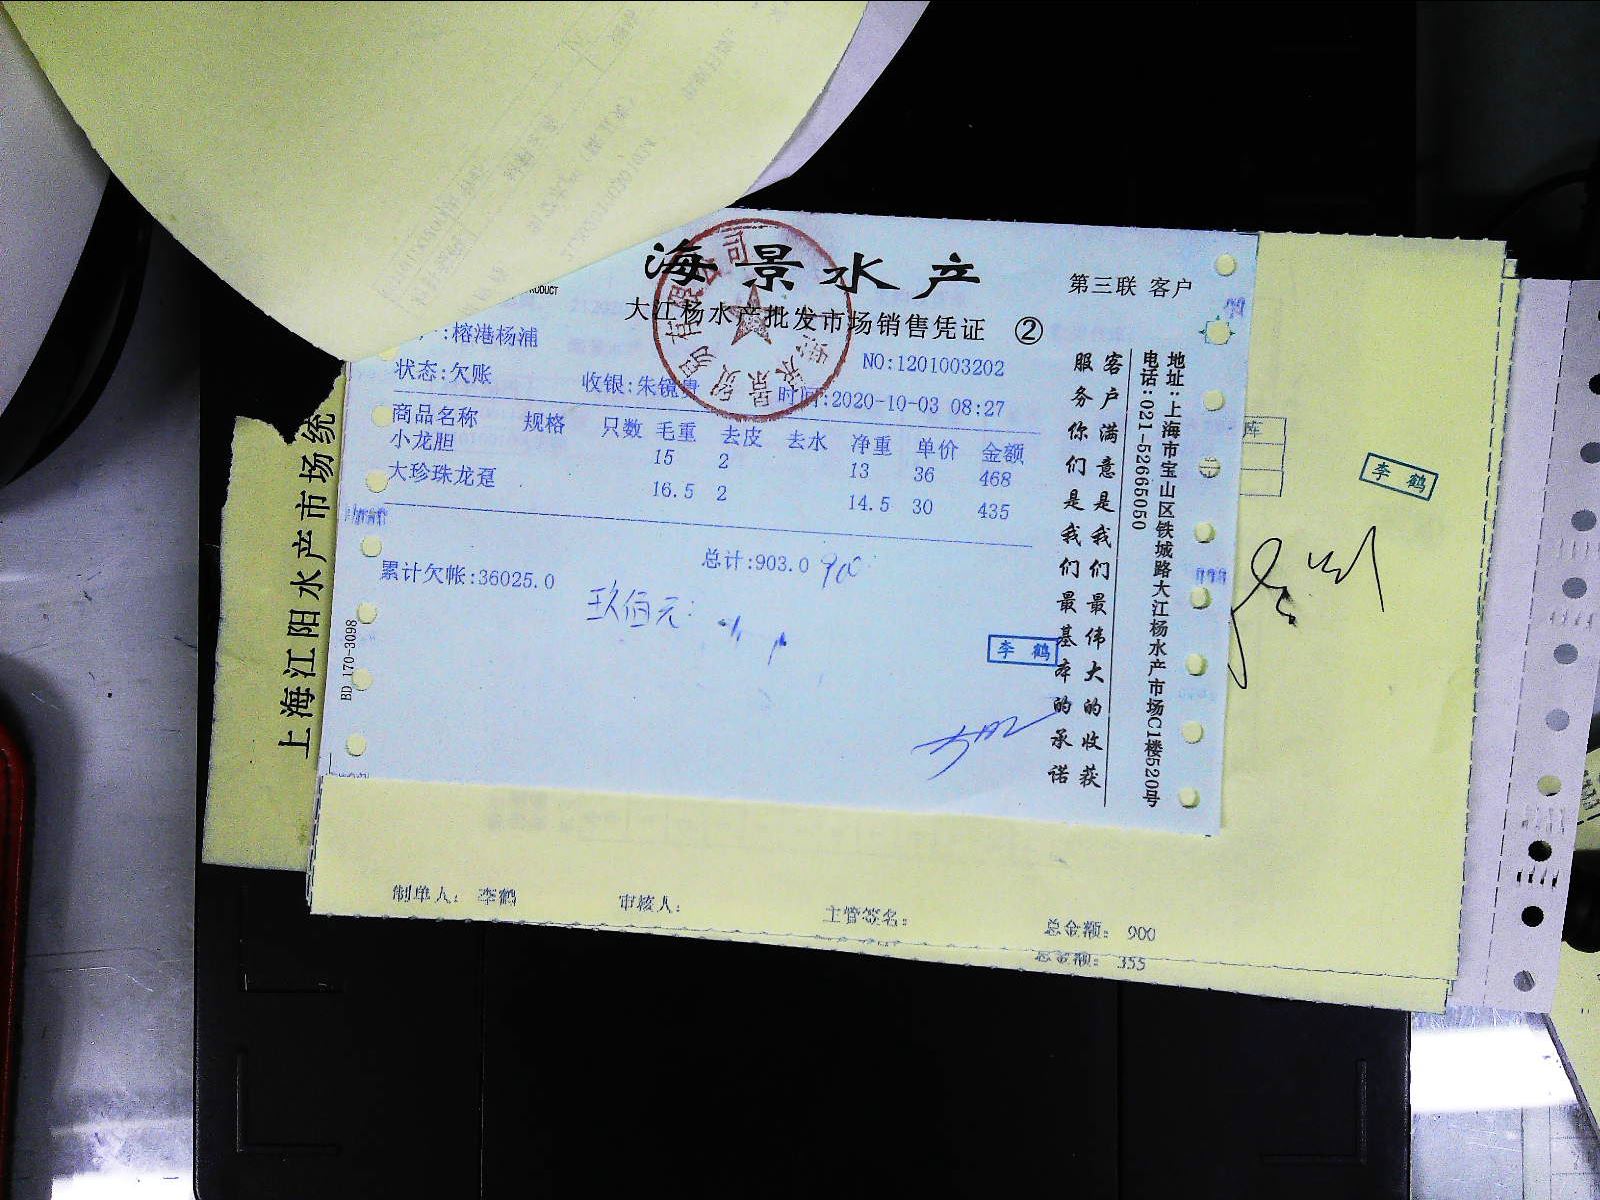 海景水产
第三联 客户
大江杨水产批发市场销售凭证 ②
:榕港杨浦
NO:1201003202
状态:欠账 收银:朱镜贵 时间:2020-10-03 08:27
商品名称 规格 只数 毛重 去皮 去水 净重 单价 金额
小龙胆 15 2 13 36 468
大珍珠龙趸 16.5 2 14.5 30 435
总计:903.0 900
累计欠帐:36025.0
玖佰元:
李鹤
客户满意是我们最伟大的收获
服务你们是我们最基本的承诺
地址:上海市宝山区铁城路大江杨水产市场C1楼520号
电话:021-52665050
BD 170-3098
上海江阳水产市场统
库
李鹤
制单人: 李鹤 审核人: 主管签名: 总金额: 900
总金额: 355